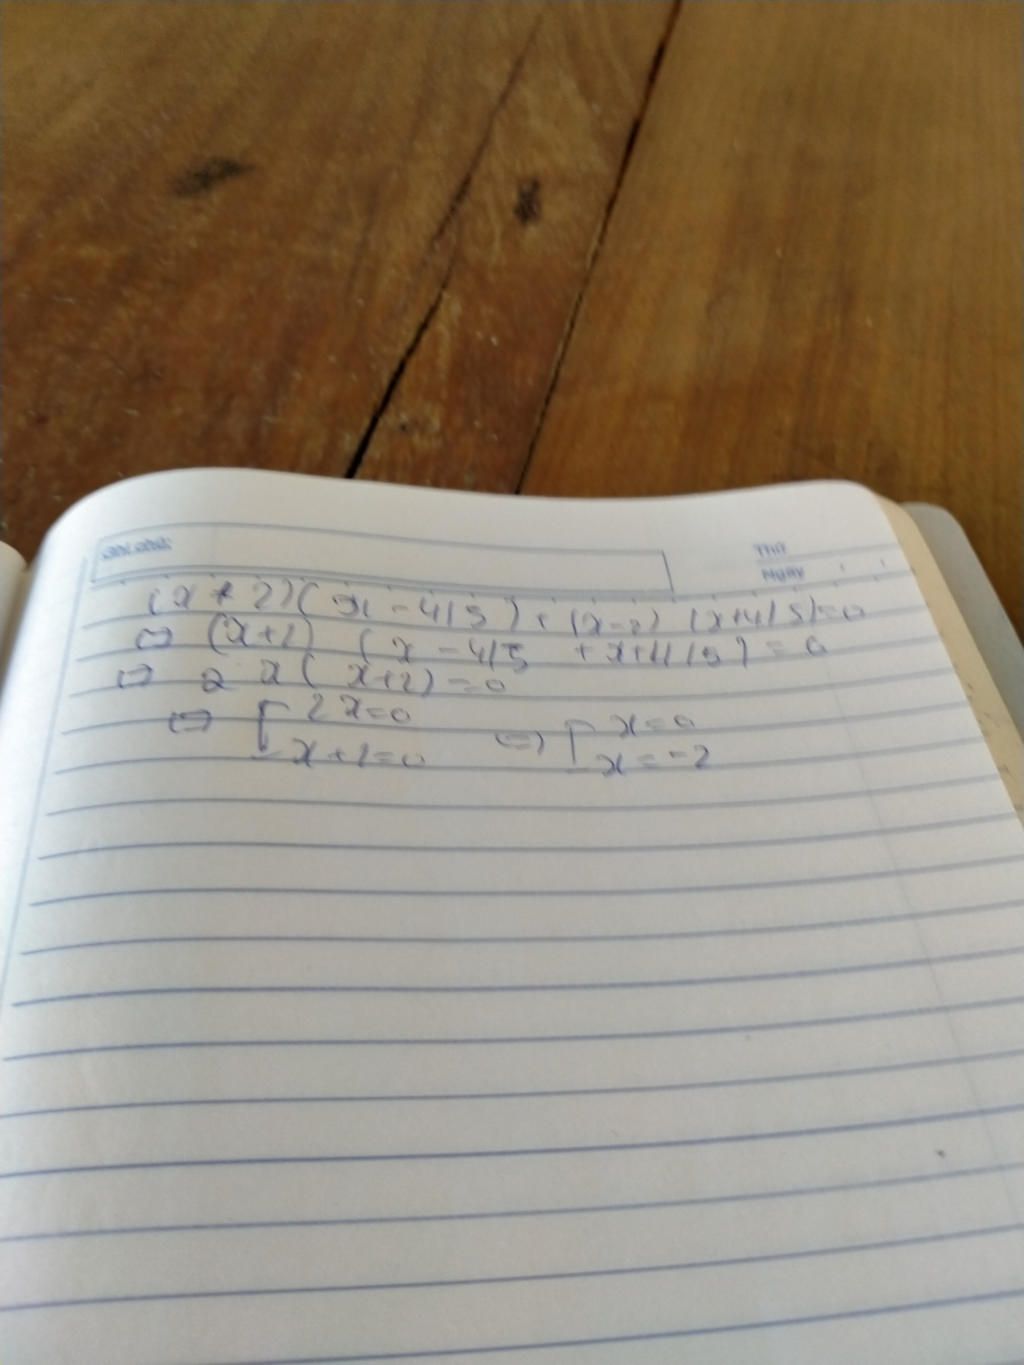 Thứ
Ngày
(x + 2)(x - 4/5) + (x-2) (x+4/5)=0
⇔ (x+2) (x - 4/5 + x+4/5) = 0
⇔ 2 x( x+2) = 0
⇔ [ 2x=0 ⇔ [ x=0
x+2=0 x = -2